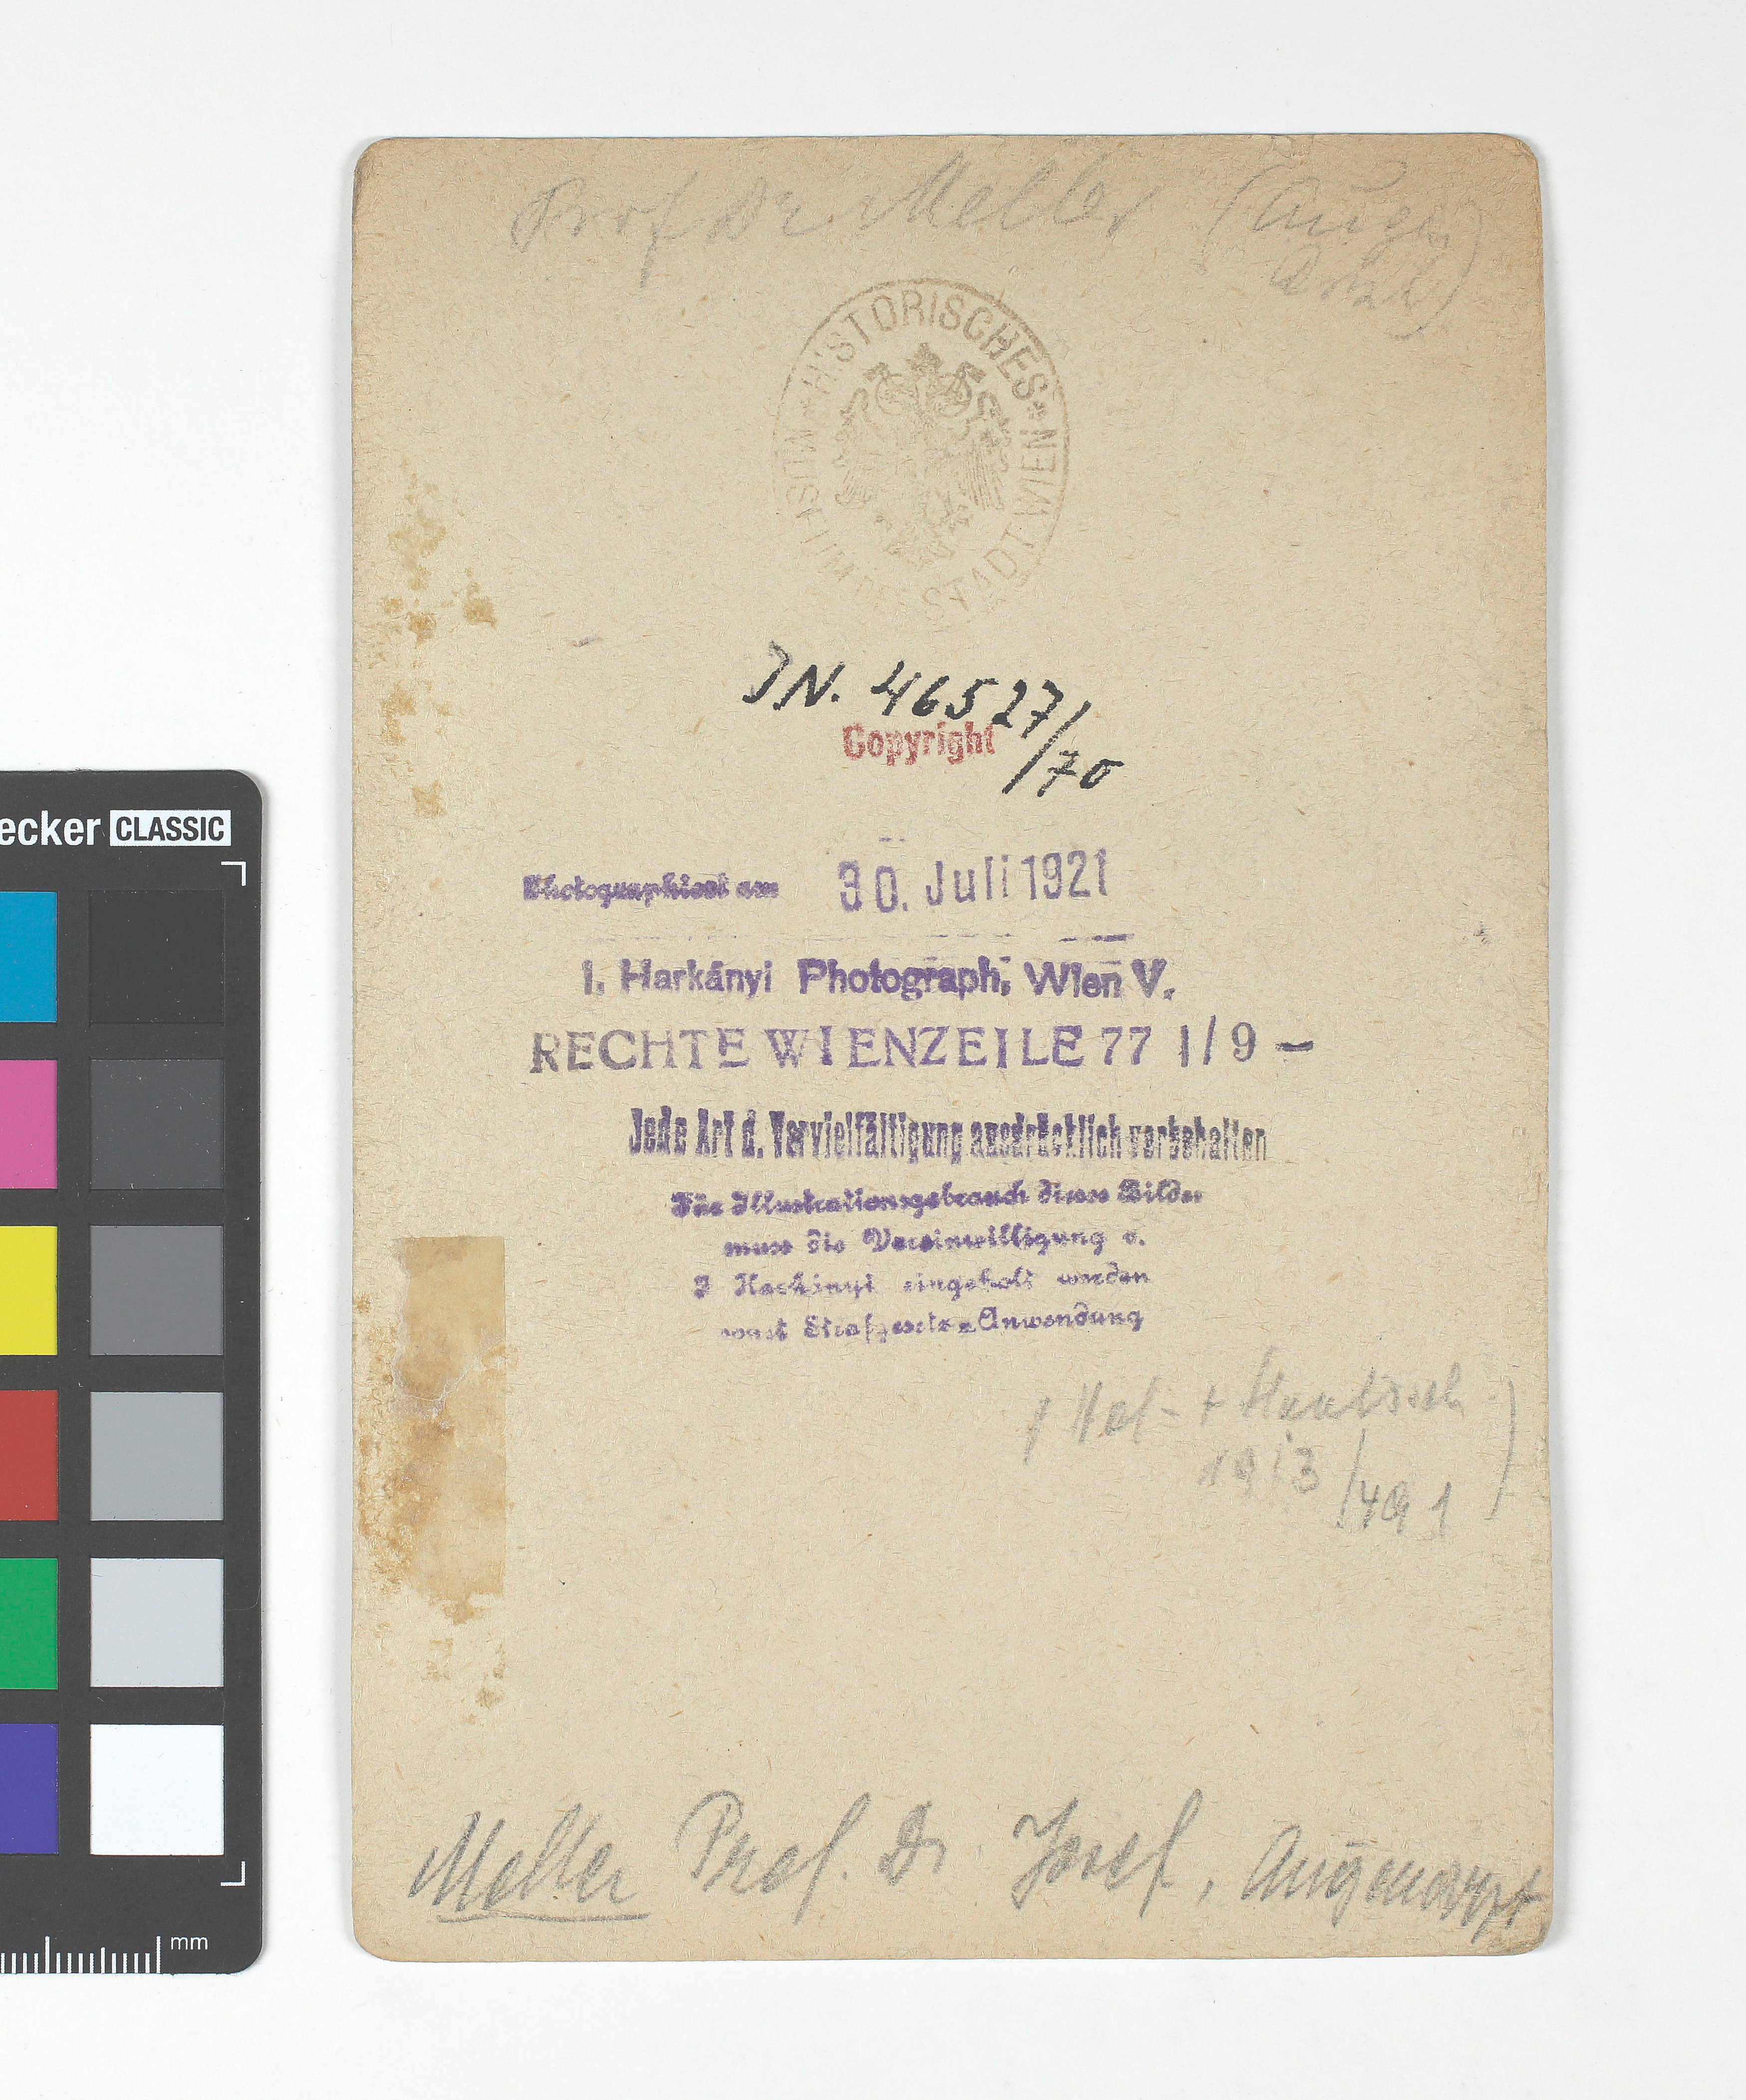 Prof Dr. Meller (Augen
HISTORISCHES * MUSEUM DER STADT WIEN *
JN. 46527/
70
Copyright
Photographiert am 30. Juli 1921
I. Harkányi Photograph, Wien V.
RECHTE WIENZEILE 77 I/9 –
Jede Art d. Vervielfältigung ausdrücklich vorbehalten
Für Illustrationsgebrauch dieses Bildes
muss die Vereinwilligung v.
I Harkányi eingeholt werden
sonst Strafgesetz=Anwendung
1913/491
Meller Prof. Dr Josef, Augenarzt
ecker CLASSIC
mm